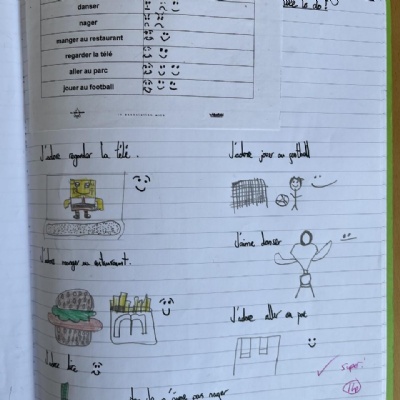 danser
nager
manger au restaurant
regarder la télé
aller au parc
jouer au football
J'adore regarder la télé.
J'adore jouer au football
J'aime danser
J'adore manger au restaurant.
J'adore aller au parc
J'adore lire
super!
pas nager